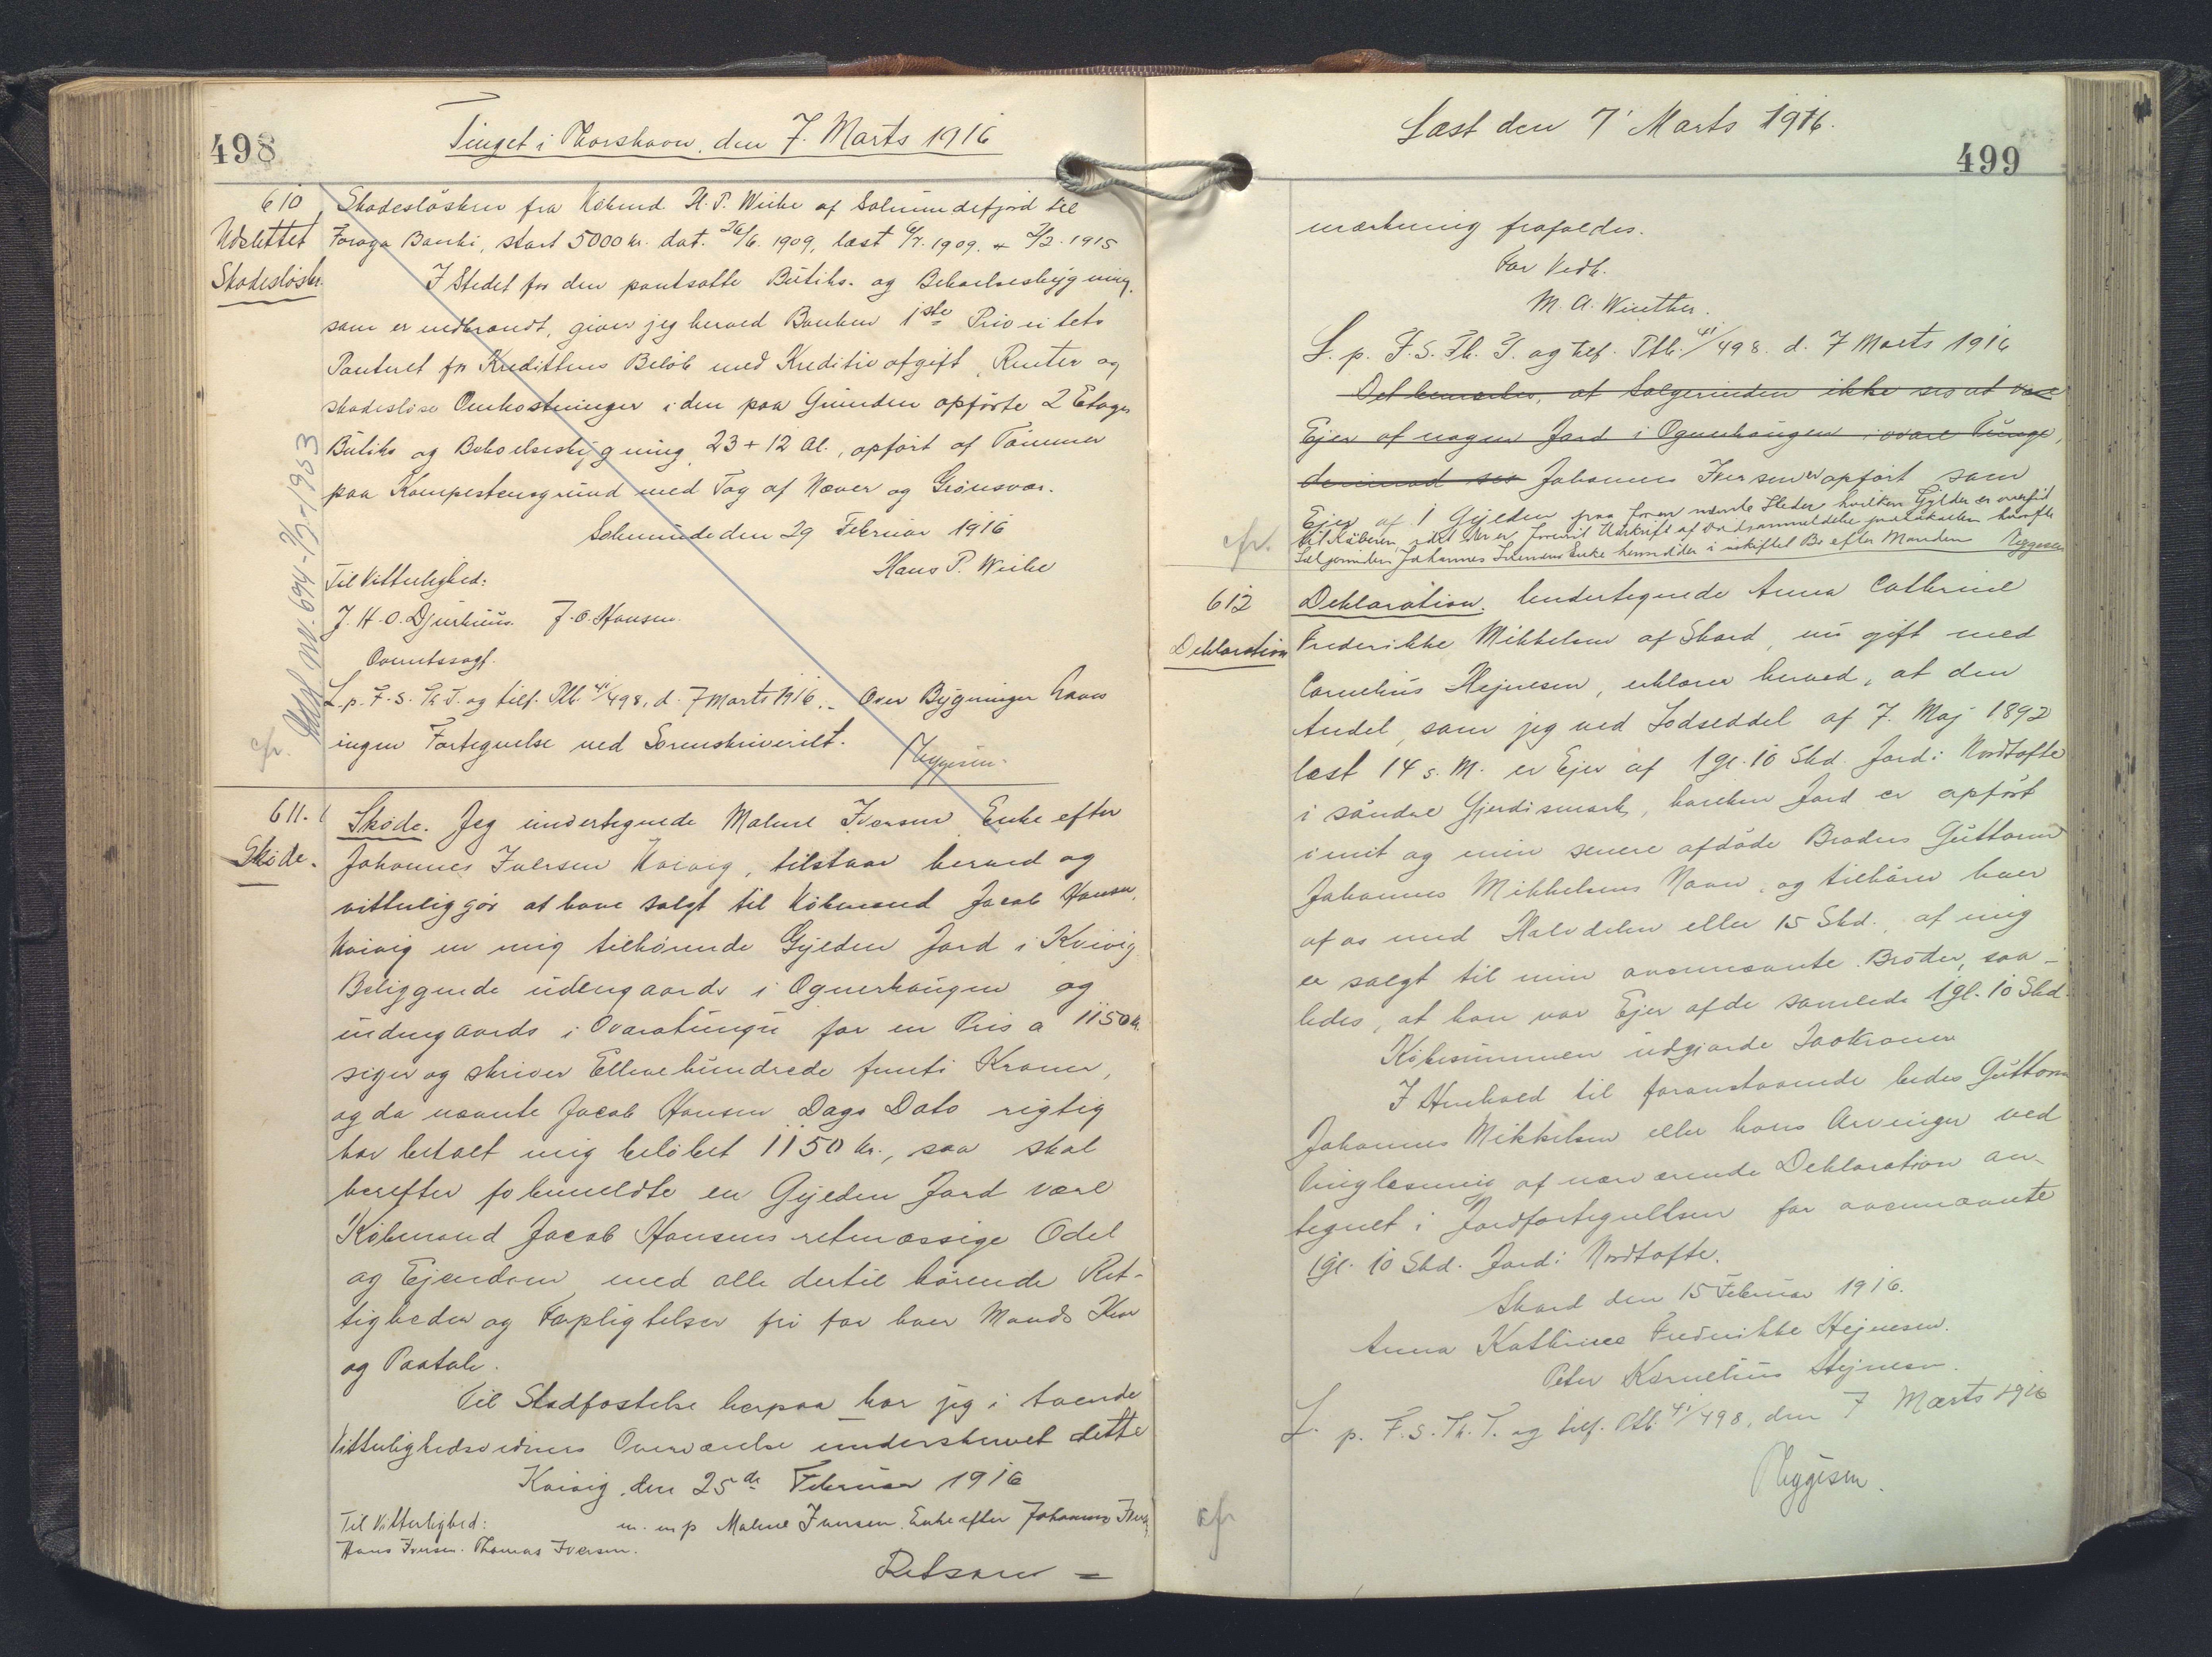 498
Tinget i Thorshavn, den 7. Marts 1916
610
Udslettet
Skadesløsbr.
Skadesløsbrev fra Købmd. H. P. Weihe af Solmundefjord til
Føroya Banki, stort 5000 Kr. dat. 26/6. 1909, læst 6/7. 1909. + 2/2. 1915
I Stedet for den pantsatte Butiks- og Beboelsesbygning,
som er nedbrændt, giver jeg herved Banken 1ste Prioritets
Panteret for Kredittens Beløb med Kreditivafgift, Renter og
skadesløse Omkostninger i den paa Grunden opførte 2 Etages
Butiks og Beboelsesbygning 23 + 12 Al., opført af Tømmer
paa Kampestensgrund med Tag af Næver og Grønsvær.
Selmunde den 29 Februar 1916
Hans P. Weihe
Til Vitterlighed:
J. H. O. Djurhuus. J. O. Hansen.
Overretssagf.
L. p. F. S. Th. T. og tilf. Ptb. 41/498, d. 7 Marts 1916. – Over Bygninger haves
ingen Fortegnelse ved Sorenskriveriet.
cfr.
611.
Skøde.
Skøde. Jeg undertegnede Malene Iversen Enke efter
Johannes Iversen Kvivig, tilstaar herved og
vitterliggør at have solgt til Købmand Jacob Hansen,
Kvivig en mig tilhørende Gylden Jord i Kvivig
Beliggende udengaards i Ognerhaugen og
indengaards i Ovaratungu for en Pris a 1150 Kr.
siger og skriver Ellevehundrede femti Kroner,
og da nævnte Jacob Hansen Dags Dato rigtig
har betalt mig beløbet 1150 Kr., saa skal
herefter fobemeldte en Gylden Jord være
Købmand Jacob Hansens retmæssige Odel
og Ejendom med alle dertil hørende Ret-
tigheder og Forpligtelser fri for hver Mands Krav
og Paatale.
Til Stadfæstelse herpaa har jeg i tvende
Vitterlighedsvidners Overværelse underskrevet dette
Kvivig, den 25de Februar 1916
Til Vitterlighed: m. m p Malene Iversen. Enke efter Johannes Iversen
Hans Iversen. Thomas Iversen.
Retsan =
Læst den 7' Marts 1916.
499
mærkning frafaldes.
For Vedk.
M. A. Winther.
L. p. F. S. Th. T. og tilf. Ptb. 41/498. d. 7 Marts 1916
Det bemærkes, at Sælgerinden ikke ses at være
Ejer af nogen Jord i Ognerhaugen i ovare Tunge,
derimod ses Johannes Iversen er opført som
Ejer af 1 Gylden paa foran nævnte Steder hvilken Gylden er overført
til Køberen, idet der er forevist Udskrift af Dødsanmeldelsesprotokollen hvorefter
Sælgerinden Johannes Iversens Enke hensidder i uskiftet Bo efter Manden
cfr.
612
Deklaration
Deklaration. Undertegnede Anna Cathrine
Frederikke Mikkelsen af Skard, nu gift med
Cornelius Hejnesen, erklærer herved, at den
Andel, som jeg ved Lodseddel af 7. Maj 1892
læst 14 s. M. er Ejer af 1 gl. 10 Skd. Jord i Nordtofte
i søndre Gjerdismark, hvilken Jord er opført
i mit og min senere afdøde Broders Guttorm
Johannes Mikkelsens Navn, og tilhører hver
af os med Halvdelen eller 15 Skd., af mig
er solgt til min ovennævnte Broder, saa-
ledes, at han var Ejer af de samlede 1 gl. 10 Skd.
Købesummen udgjorde 200 Kroner
I Henhold til foranstaaende bedes Guttorm
Johannes Mikkelsen eller hans Arvinger ved
Tinglæsning af nærværende Deklaration an-
tegnet i Jordfortegnelsen for ovennævnte
1 gl. 10 Skd. Jord i Nordtofte.
Skard den 15 Februar 1916.
Anna Kathrine Fredrikke Hejnesen.
Peter Kornelius Hejnesen.
L. p. F. S. Th. T. og tilf. Ptb. 41/498, den 7 Marts 1916
cfr